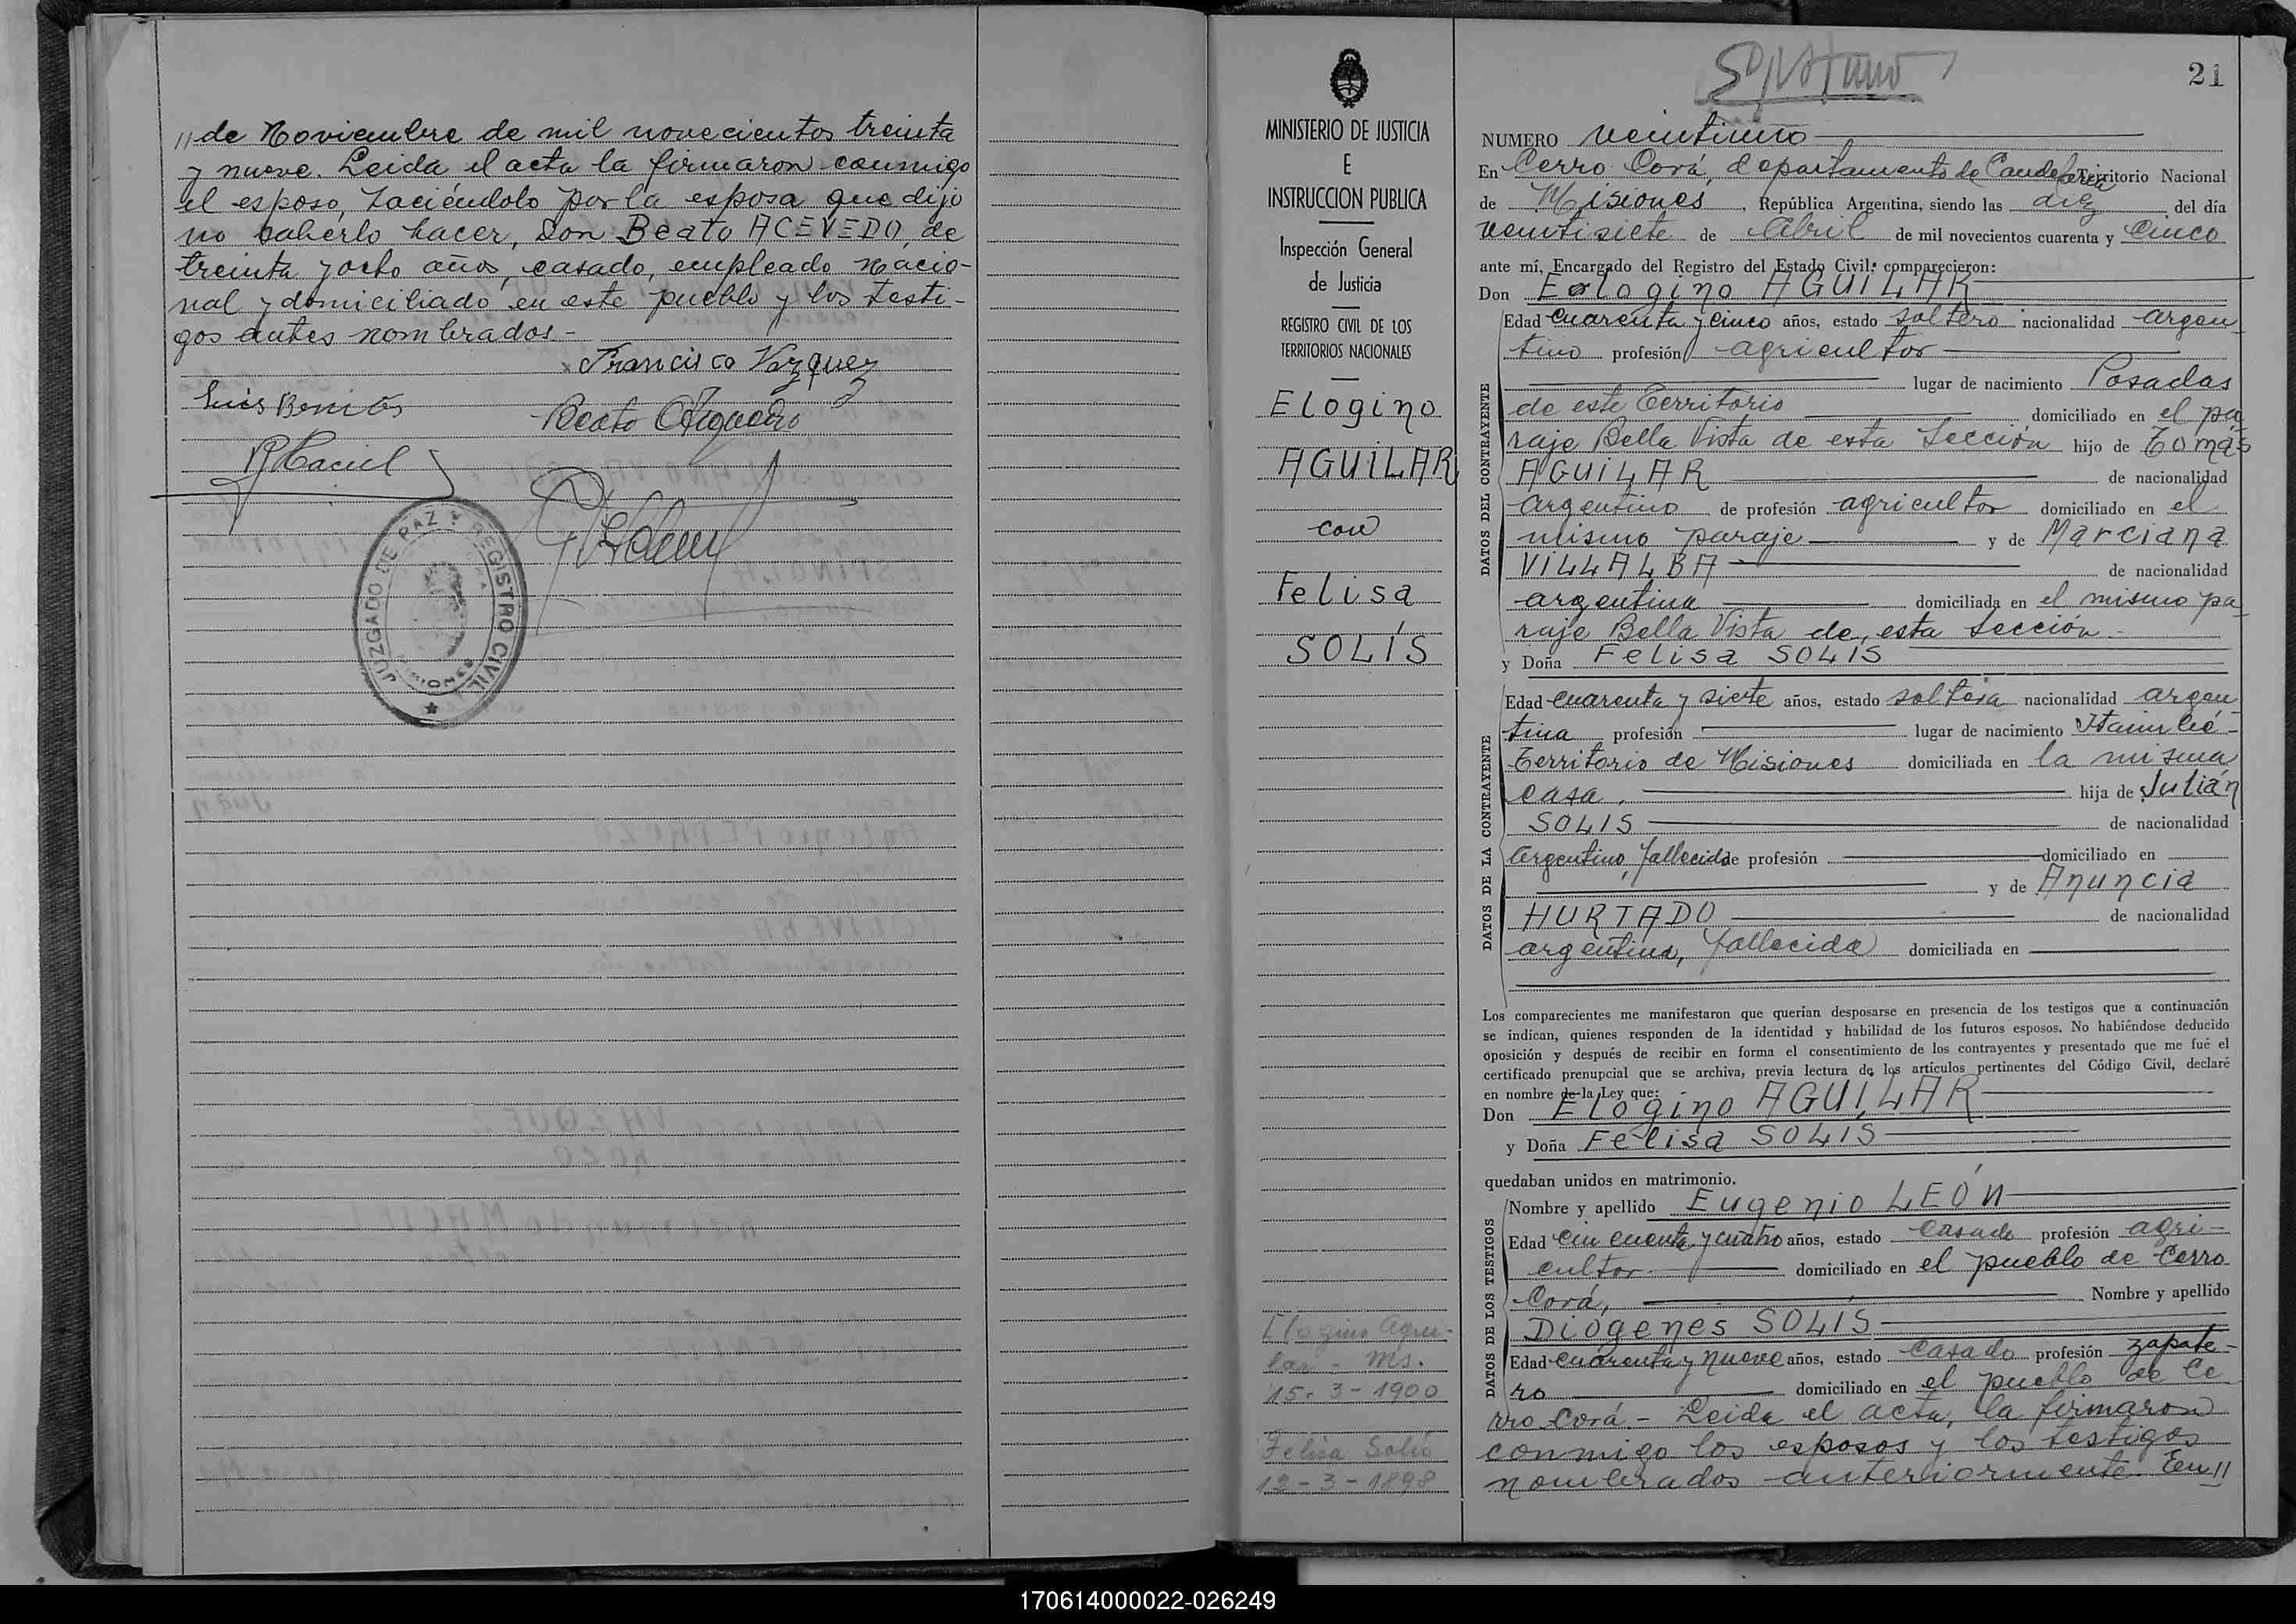 //de Noviembre de mil novecientos treinta
y nueve. Leida el acta la firmaron conmigo
el esposo, haciéndolo por la esposa que dijo
no saberlo hacer, Don Beato ACEVEDO, de
treinta y ocho años, casado, empleado nacio-
nal y domiciliado en este pueblo y los testi-
gos antes nombrados.-
Francisco Vazquez
Luis Benitos
Beato
R Maciel
JUZGADO DE PAZ Y REGISTRO CIVIL
MISIONES
MINISTERIO DE JUSTICIA
E
INSTRUCCION PUBLICA
Inspección General
de Justicia
REGISTRO CIVIL DE LOS
TERRITORIOS NACIONALES
Elogino
AGUILAR
con
Felisa
SOLÍS
Elogino Agui-
lar - Ms.
15-3-1900
Felisa Solis
12-3-1898
21
NUMERO veintiuno
En Cerro Corá, departamento de Candelaria Territorio Nacional
de Misiones, República Argentina, siendo las diez del día
veintisiete de Abril de mil novecientos cuarenta y Cinco
ante mí, Encargado del Registro del Estado Civil, comparecieron:
Don Elogino AGUILAR
DATOS DEL CONTRAYENTE
Edad Cuarenta y cinco años, estado soltero nacionalidad argen-
tino profesión agricultor
lugar de nacimiento Posadas
de este Territorio domiciliado en el pa-
raje Bella Vista de esta Sección hijo de Tomás
AGUILAR de nacionalidad
argentino de profesión agricultor domiciliado en el
mismo paraje y de Marciana
VILLALBA de nacionalidad
argentina domiciliada en el mismo pa-
raje Bella Vista de esta Sección.-
y Doña Felisa SOLIS
DATOS DE LA CONTRAYENTE
Edad cuarenta y siete años, estado soltera nacionalidad argen-
tina profesión lugar de nacimiento
Territorio de Misiones domiciliada en la misma
casa. hija de Julián
SOLIS de nacionalidad
argentino, fallecido de profesión domiciliado en
y de Anuncia
HURTADO de nacionalidad
argentina, fallecida domiciliada en
Los comparecientes me manifestaron que querían desposarse en presencia de los testigos que a continuación
se indican, quienes responden de la identidad y habilidad de los futuros esposos. No habiéndose deducido
oposición y después de recibir en forma el consentimiento de los contrayentes y presentado que me fué el
certificado prenupcial que se archiva, previa lectura de los artículos pertinentes del Código Civil, declaré
en nombre de la Ley que:
Don Elogino AGUILAR
y Doña Felisa SOLIS
quedaban unidos en matrimonio.
DATOS DE LOS TESTIGOS
Nombre y apellido Eugenio LEÓN
Edad cincuenta y cuatro años, estado casado profesión agri-
cultor domiciliado en el pueblo de Cerro
Corá, Nombre y apellido
Diógenes SOLÍS
Edad cuarenta y nueve años, estado casado profesión zapate-
ro domiciliado en el pueblo de Ce-
rro Corá - Leida el acta, la firmaron
conmigo los esposos y los testigos
nombrados anteriormente. En//
170614000022-026249